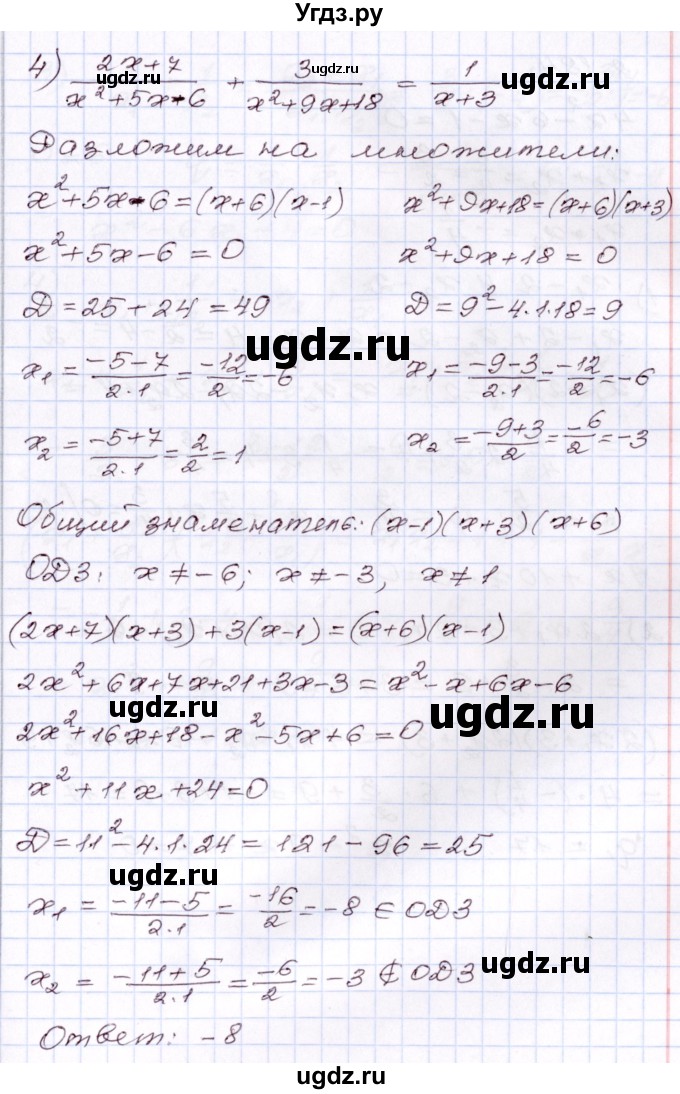 Угдз.ру
4) (2x+7)/(x²+5x-6) + 3/(x²+9x+18) = 1/(x+3)
ugdz.ru
ugdz.ru
ugdz.ru
Разложим на множители:
x²+5x-6=(x+6)(x-1) x²+9x+18=(x+6)(x+3)
x²+5x-6=0 x²+9x+18=0
D=25+24=49 D=9²-4·1·18=9
ugdz.ru
x₁ = (-5-7)/(2·1) = -12/2 = -6 x₁ = (-9-3)/(2·1) = -12/2 = -6
x₂ = (-5+7)/(2·1) = 2/2 = 1 x₂ = (-9+3)/2 = -6/2 = -3
Общий знаменатель: (x-1)(x+3)(x+6)
ОДЗ: x≠-6; x≠-3, x≠1
(2x+7)(x+3)+3(x-1)=(x+6)(x-1)
2x²+6x+7x+21+3x-3=x²-x+6x-6
ugdz.ru
ugdz.ru
2x²+16x+18-x²-5x+6=0
x²+11x+24=0
D=11²-4·1·24=121-96=25
ugdz.ru
x₁ = (-11-5)/(2·1) = -16/2 = -8 ∈ ОДЗ
x₂ = (-11+5)/(2·1) = -6/2 = -3 ∉ ОДЗ
ugdz.ru
Ответ: -8
ugdz.ru